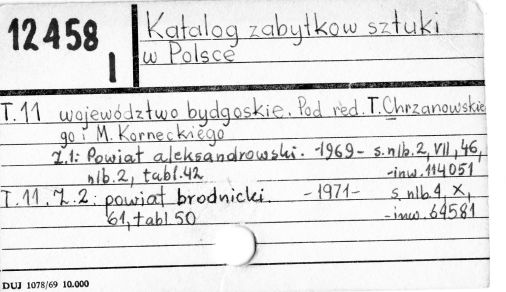 12458
I
Katalog zabytkow sztuki
w Polsce
T.11 województwo bydgoskie. Pod red. T. Chrzanowskie
go i M. Korneckiego
Z.1: Powiat aleksandrowski. -1969- s.nlb.2, VII, 46,
nlb.2, tabl.42 -inw.114051
T.11. Z.2: powiat brodnicki. -1971- s.nlb.4, X,
61, tabl 50 -inw.64581
DUJ 1078/69 10.000